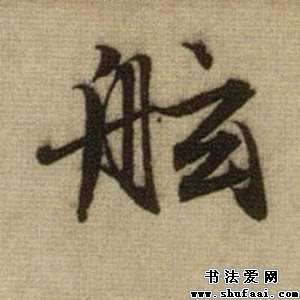 舷
书法爱网
www.shufaai.com